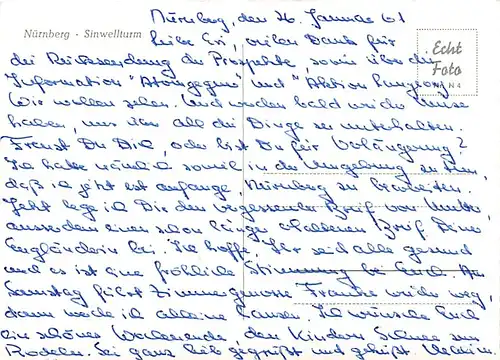 Nürnberg, den 26. Januar 61
Nürnberg · Sinwellturm
Liebe Evi, vielen Dank für
Echt
Foto
N 4
die Rücksendung der Prospekte, sowie über die
Information "Atomgegner" und "Aktion
Wir wollen sehen. Und werden bald wieder Muse
haben, uns über all die Dinge zu unterhalten.
Freust Du Dich, oder bist Du für Verlängerung?
Ich hatte nämlich soviel in der Umgebung zu tun,
daß ich jetzt erst anfange, Nürnberg zu bearbeiten.
Jetzt lege ich Dir den vergessenen Brief von Mutter,
ausserdem einen schon länger erhaltenen Brief Deiner
Engländerin bei. Ich hoffe, Ihr seid alle gesund
und es ist eine fröhliche Stimmung bei Euch. Am
Samstag fährt Zimmergenosse Franke wieder weg,
dann werde ich alleine hausen. Ich wünsche Euch
ein schönes Wochenende, den Kindern Schnee zum
Rodeln. Sei ganz lieb gegrüßt und geküßt Deinem